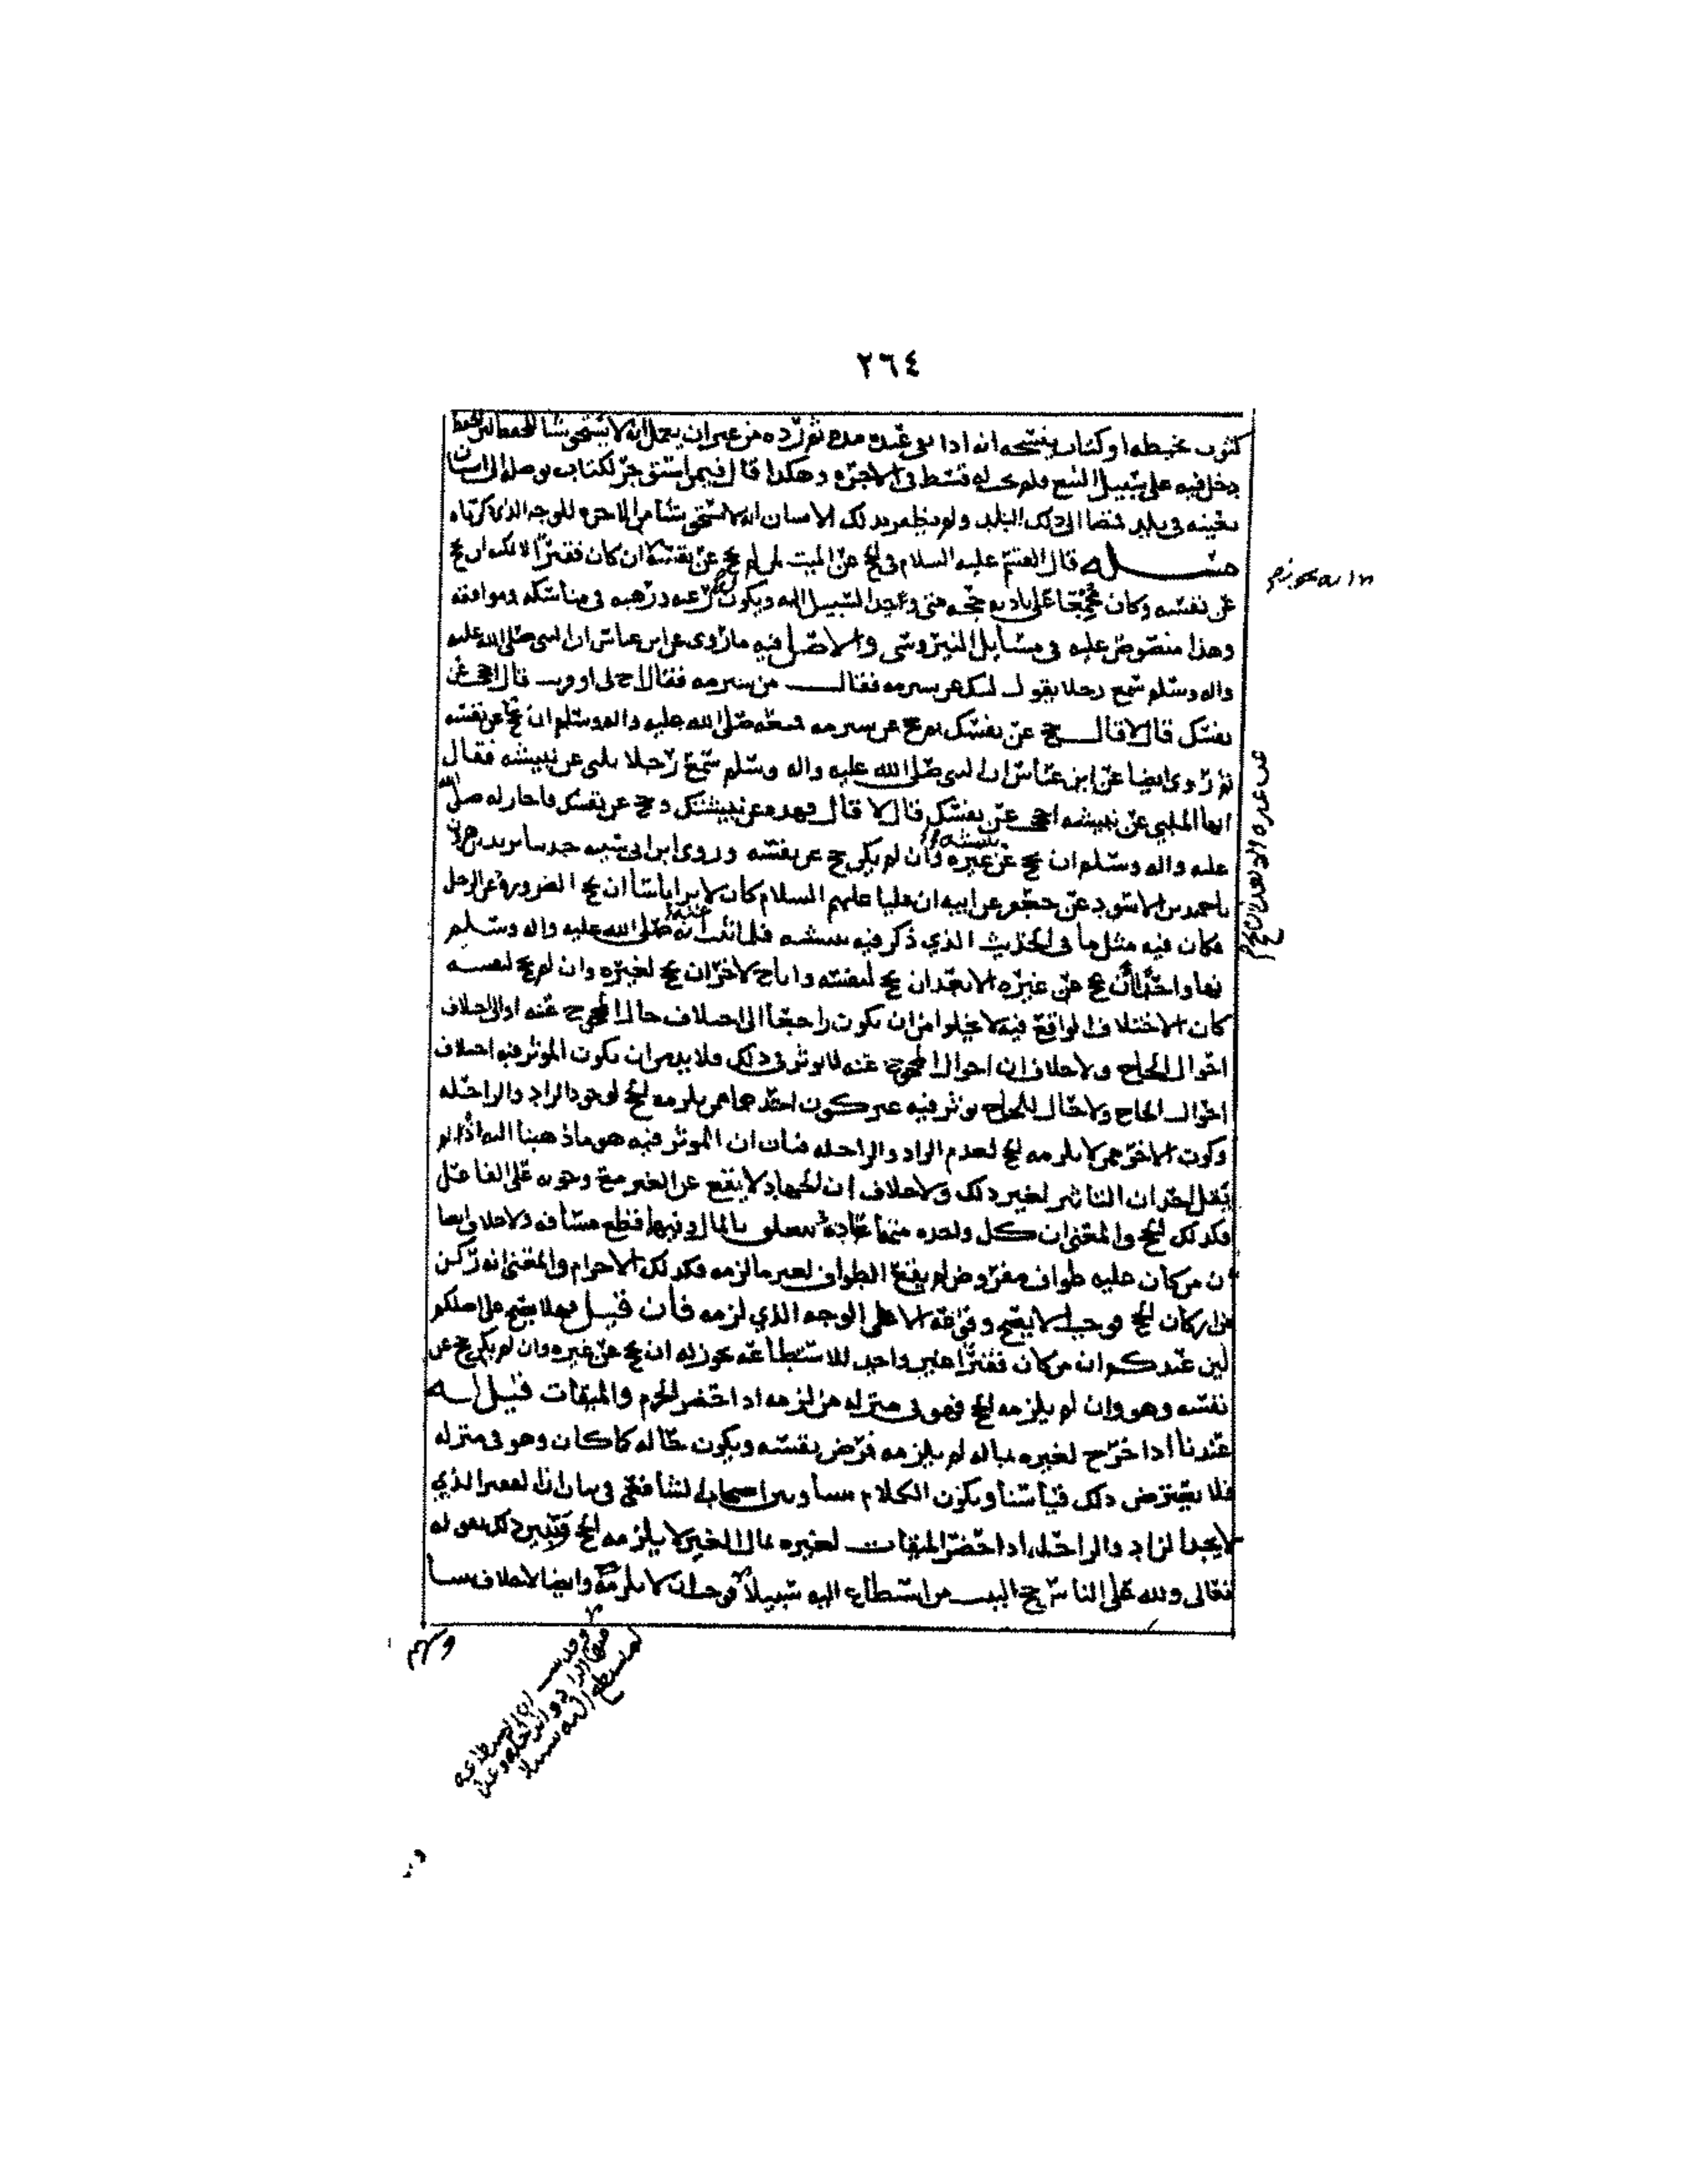 ٢٦٤
كثوب يخيطه او كتاب ينسخه انه اذا ثم رده من غير ان يعمل انه لا يستحق شيأ
دخل فيه على سبيل البيع ولم قسط فى الاجره وهكذا قال فيمن استوجر لكتاب يوصله الى انسان
بعينه فى بلد فمضا الى ذلك البلد ولم يظفر بذلك الانسان انه لا يستحق شيأ من الاجره للوجه الذى ذكرناه
مسـله قال القسم عليه السلام فى الحج عن الميت لمن لم يحج عن نفسه ان كان فقيرا لا يمكنه ان يحج
عن نفسه وكان مجمعا على تاديه حجه متى وجد السبيل اليه ويكون عنه ورهبه فى مناسكه ومواقفه
وهذا منصوص عليه فى مسايل النيروسى والاصل فيه ما روى عن ابن عباس ان النبى صلى الله عليه
واله وسلم سمع رجلا يقول لبيك عن شبرمه فقال من شبرمه فقال اخ لى او قريب قال احججت عن
نفسك قال لا قال حج عن نفسك ثم حج عن شبرمه فمنعه صلى الله عليه واله وسلم ان يحج عن نفسه
ثم روى ايضا عن ابن عباس ان النبى صلى الله عليه واله وسلم سمع رجلا يلبى عن نبيشه فقال
ايها الملبي عن نبيشه احججت عن نفسك قال لا قال فهذه عن نبيشه وحج عن نفسك فاجاز له صلى الله
عليه واله وسلم ان يحج عن غيره وان لم يكن حج عن نفسه وروى ابن ابى شيبه حدثنا يزيد بن هرون
حميد بن الاسود عن جعفر عن ابيه ان عليا عليهم السلام كان لا يرا باسا ان يحج الضروره عن الرجل
فكان فيه مثل ما فى الحديث الذي ذكر فيه نبيشه فلما ثبت انه صلى الله عليه واله وسلم
نها واحدا ان يحج عن غيره الا بعد ان يحج لنفسه واباح لاخر ان يحج لغيره وان لم يحج لنفسه
كان الاختلاف الواقع فيه لا يخلوا من ان يكون راجعا الى اختلاف حال المحجوج عنه او الى اختلاف
احوال الحاج ولا خلاف ان احوال المحجوج عنه لا يوثر فى ذلك فلا بد من ان يكون الموثر فيه اختلاف
احوال الحاج ولا حال للحاج يوثر فيه غير كون احدهما ممن يلزمه الحج لوجود الزاد والراحله
وكون الاخر ممن لا يلزمه الحج لعدم الزاد والراحله فبان ان الموثر فيه هو ما ذهبنا اليه اذا لم
يقل احد ان التاثير لغير ذلك ولا خلاف ان الجهاد لا يقع عن الغير مع وجوبه على الفاعل
فكذلك الحج والمعنى ان كل واحده منهما عباده تتعلق بالمال وفيها قطع مسافه ولا خلاف ايضا
ان من كان عليه طواف مفروض لم يقع الطواف لغير ما لزمه فكذلك الاحرام والمعنى انه ركن
من اركان الحج فوجب ان لا يصح وقوعه الا على الوجه الذي لزمه فان قيل فهلا يصح على اصلكم
لين عندكم ان من كان فقيرا غير واجد للاستطاعه يجوز له ان يحج عن غيره وان لم يكن حج عن
نفسه وهو وان لم يلزمه الحج فهو فى منزله من لزمه اذا حضر الحرم والميقات قيل له
عندنا اذا خرج لغيره بماله لم يلزمه فرض نفسه ويكون حاله كما كان وهو فى منزله
فلا يعترض ذلك قياسنا ويكون الكلام بيننا وبين اصحاب الشافعى فى بيان ان الفقير الذي
لا يجد الزاد والراحله اذا حضر الميقات لغيره بمال الغير لا يلزمه الحج فيبين ذلك بقوله
تعالى ولله على الناس حج البيت من استطاع اليه سبيلا فوجب ان لا يلزمه وايضا لا خلاف بيننا
وقد ان الاستطاعه
هى الزاد والراحله
لم يستطع اليه سبيلا